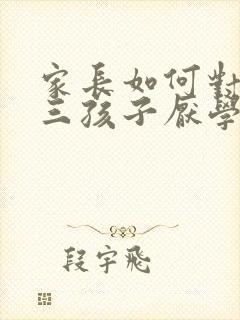 家長如何對
三孩子厭學
段宇飛